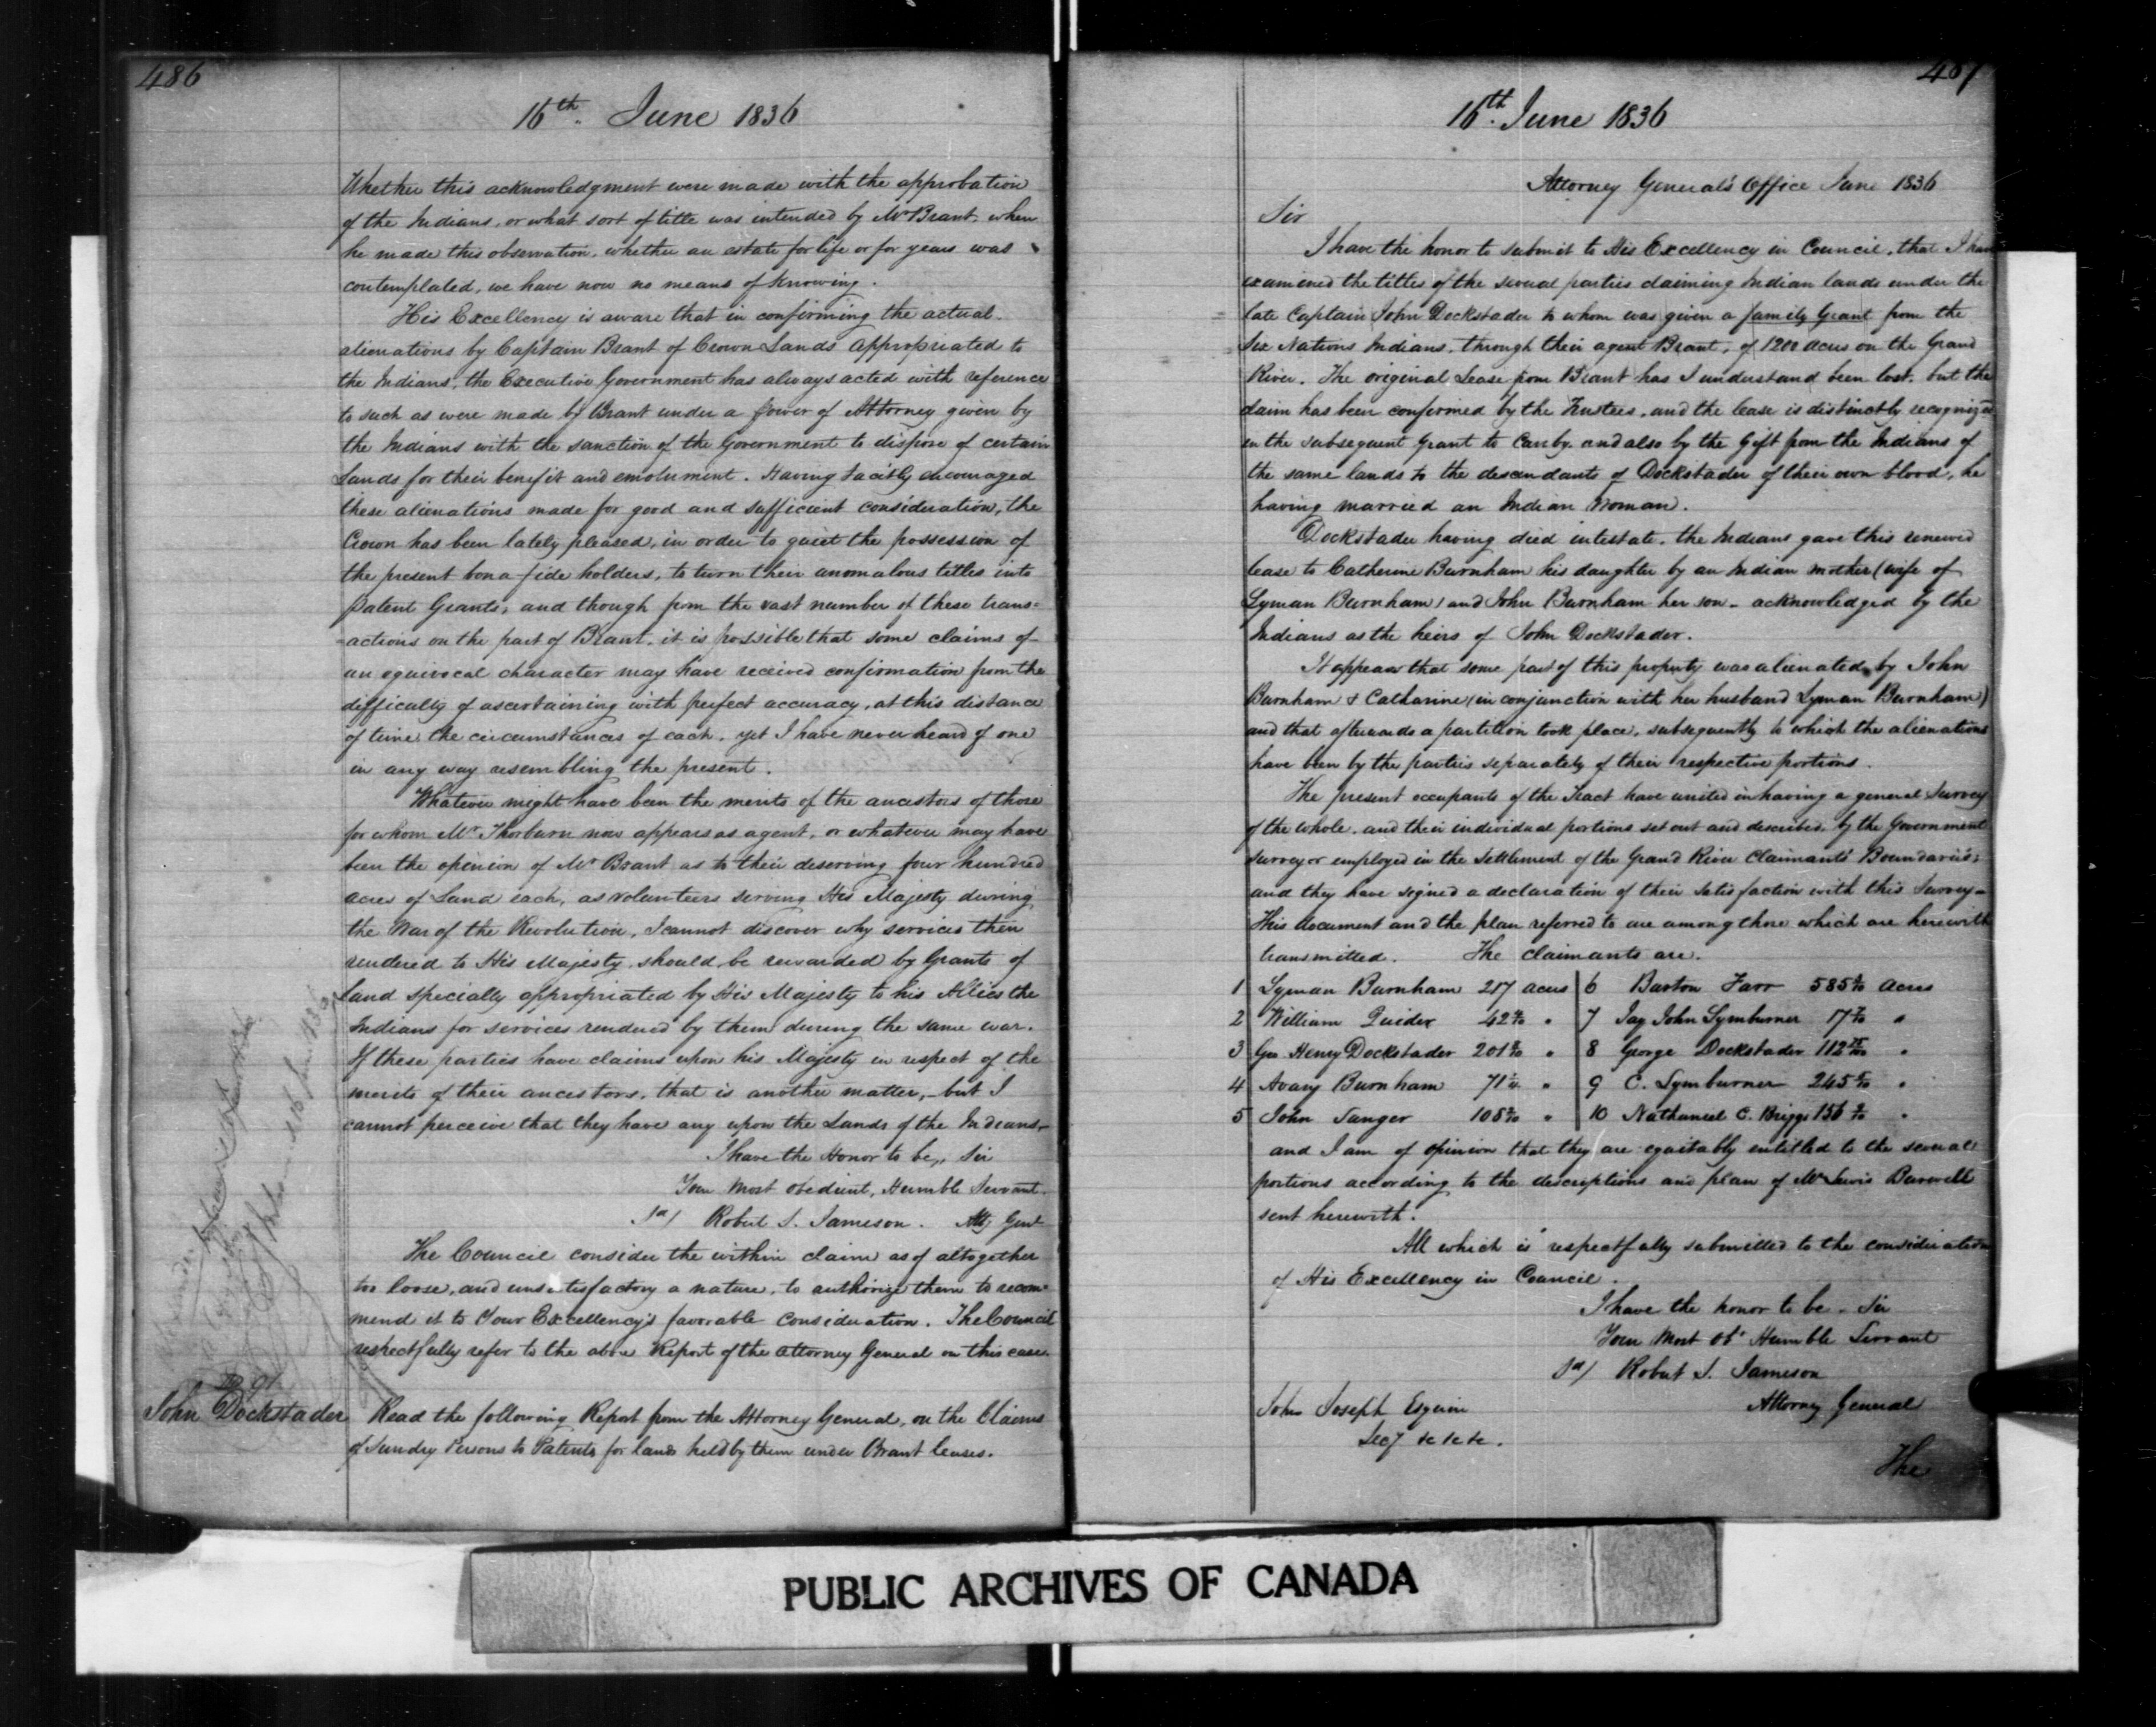 486
16th. June 1836
Whether this acknowledgment were made with the approbation
of the Indians, or what sort of title was intended by Mr Brant, when
he made this observation, whether an estate for life or for years was
contemplated, we have now no means of knowing.
His Excellency is aware that in confirming the actual
alienations by Captain Brant of Crown Lands appropriated to
the Indians, the Executive Government has always acted with reference
to such as were made by Brant under a Power of Attorney given by
the Indians with the sanction of the Government to dispose of certain
Lands for their benefit and emolument. Having tacitly encouraged
these alienations made for good and sufficient consideration, the
Crown has been lately pleased, in order to quiet the possession of
the present bona fide holders, to turn their anomalous titles into
Patent Grants, and though from the vast number of these trans=
=actions on the part of Brant, it is possible that some claims of
an equivocal character may have received confirmation from the
difficulty of ascertaining with perfect accuracy, at this distance
of time, the circumstances of each, yet I have never heard of one
in any way resembling the present.
Whatever might have been the merits of the ancestors of those
for whom Mr Thorburn now appears as agent, or whatever may have
been the opinion of Mr Brant as to their deserving four hundred
acres of Land each, as volunteers serving His Majesty during
the War of the Revolution, I cannot discover why services then
rendered to His Majesty should be rewarded by Grants of
Land specially appropriated by His Majesty to his Allies the
Indians for services rendered by them during the same war.
If these parties have claims upon his Majesty in respect of the
merits of their ancestors, that is another matter, - but I
cannot perceive that they have any upon the Lands of the Indians -
I have the Honor to be, Sir
Your Most Obedient, Humble Servant
Sd/ Robert S. Jameson. Atty Genl
The Council consider the within claim as of altogether
too loose, and unsatisfactory a nature, to authorize them to recom=
mend it to Your Excellency's favorable consideration. The Council
respectfully refer to the above Report of the Attorney General on this case.
John Dockstader
Read the following Report from the Attorney General, on the Claims
of Sundry Persons to Patents for lands held by them under Brant leases.
487
16th. June 1836
Attorney General's Office June 1836
Sir
I have the honor to submit to His Excellency in Council, that I have
examined the titles of the several parties claiming Indian lands under the
late Captain John Dockstader to whom was given a family Grant from the
Six Nations Indians, through their agent Brant, of 1200 acres on the Grand
River. The original Lease from Brant has I understand been lost, but the
claim has been confirmed by the Trustees, and the lease is distinctly recognized
in the subsequent Grant to Canby, and also by the Gift from the Indians of
the same lands to the descendants of Dockstader of their own blood, he
having married an Indian Woman.
Dockstader having died intestate, the Indians gave this renewed
lease to Catherine Burnham his daughter by an Indian mother (wife of
Lyman Burnham) and John Burnham her son - acknowledged by the
Indians as the heirs of John Dockstader.
It appears that some part of this property was alienated by John
Burnham & Catharine (in conjunction with her husband Lyman Burnham)
and that afterwards a partition took place, subsequently to which the alienations
have been by the parties separately of their respective portions.
The present occupants of the Tract have united in having a general Survey
of the whole, and their individual portions set out and described, by the Government
surveyor employed in the settlement of the Grand River Claimants' Boundaries;
and they have signed a declaration of their satisfaction with this Survey -
This document and the plan referred to are among those which are herewith
transmitted. The claimants are.
1 Lyman Burnham 217 acres 6 Barton Farr 585 acres
2 William 42 " 7 John Symburner 17 "
3 Geo Henry Dockstader 201 " 8 George Dockstader 112 "
4 Avary Burnham 71 " 9 C. Symburner 245 "
5 John Sanger 108 " 10 Nathaniel C. Briggs 156 "
and I am of opinion that they are equitably entitled to the several
portions according to the descriptions and plan of Mr Lewis Burwell
sent herewith.
All which is respectfully submitted to the consideration
of His Excellency in Council.
I have the honor to be - Sir
Your Most Obt Humble Servant
Sd/ Robert S. Jameson
Attorney General
John Joseph Esquire
Secy &c &c &c.
The
PUBLIC ARCHIVES OF CANADA